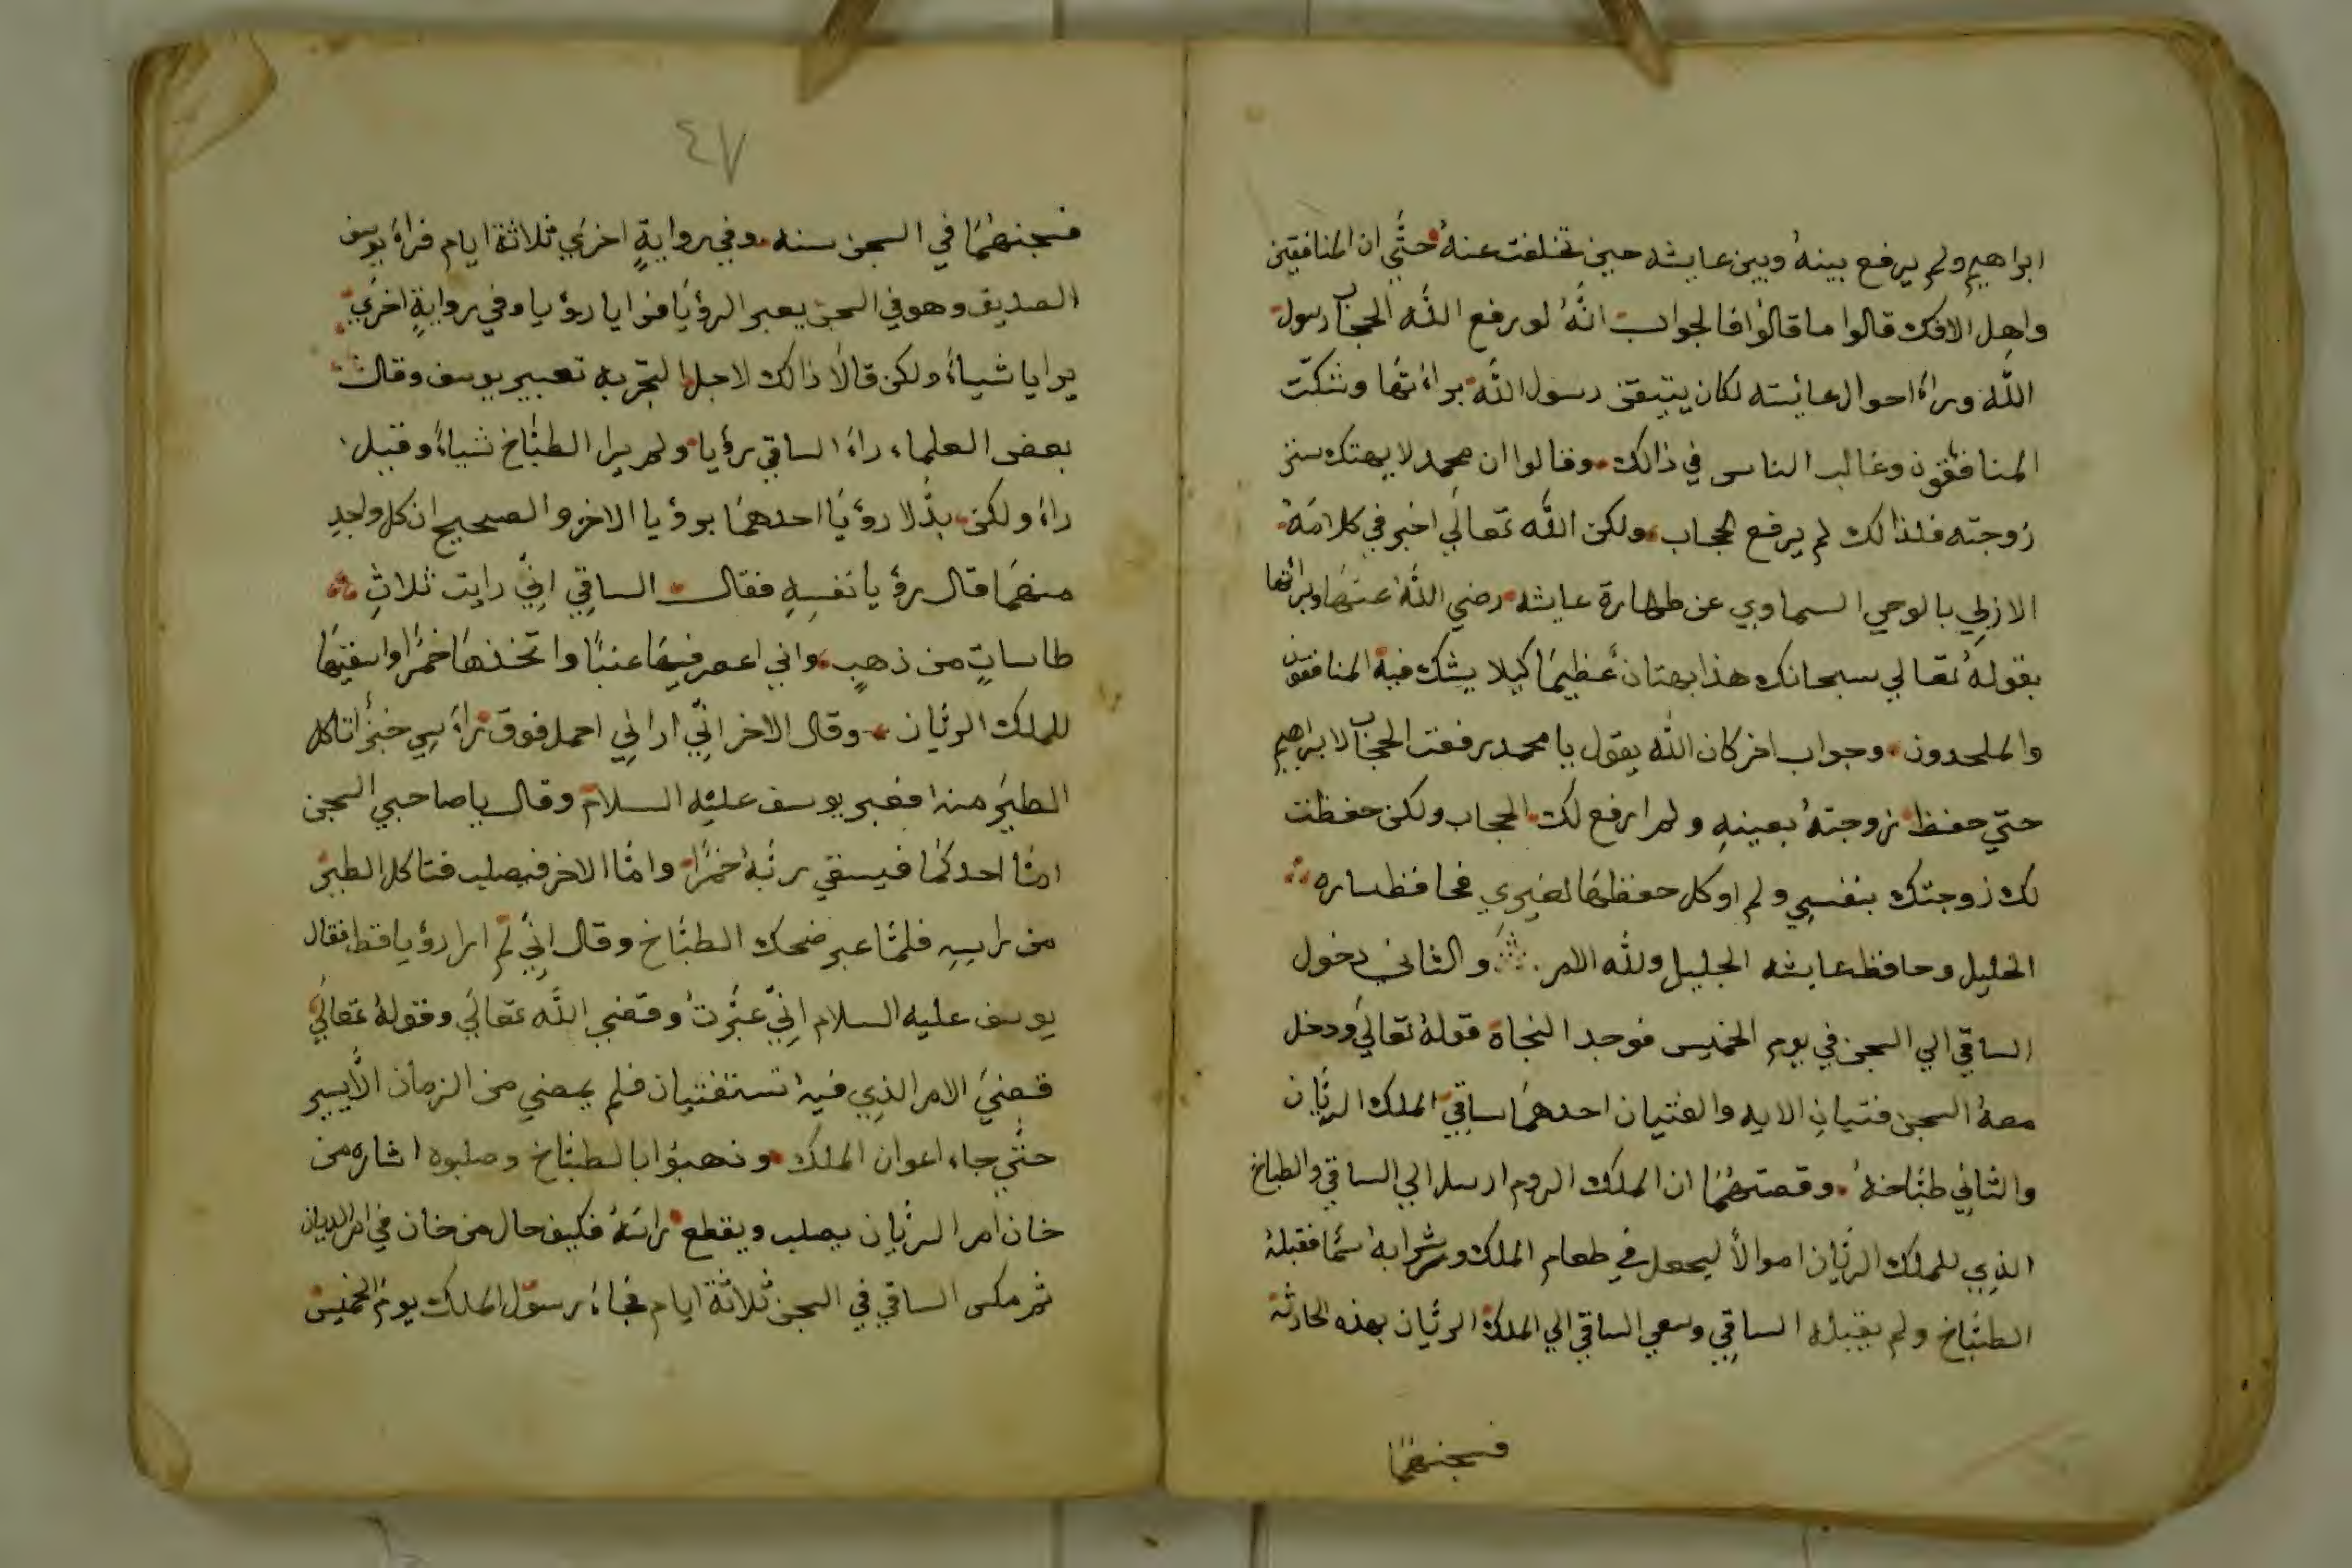 ابراهيم ولم يرفع بينهُ وبين عايشه حين تخلفت عنهُ حتَّي ان المنافقين
واهل الافك قالوا ما قالوُا فالجواب انَّهُ لو رفع اللّه الحجاب رسول
اللّه وراءَ احوال عائشه لكان يتيقن رسول اللّه براءتها وشكّت
المنافقون وغالب الناس في ذالك وقالوا ان محمد لا يهتك ستر
زوجته فلذالك لم يرفع حجاب ولكن اللّه تعالَي اخبر في كلامه
الازلِي بالوحي السماوي عن طهارة عايشه رضي اللّهُ عنهَا وبرائتها
بقولهُ تعالي سبحانك هذا بهتانُ عظيمَا كيلا يشك فيه المنافقون
والملحدون وجواب اخر كان اللّه يقول يا محمد رفعت الحجاب لابراهيم
حتي حفظ زوجتهُ بعينهِ ولم ارفع لك الحجاب ولكن حفظت
لك زوجتك بنفسِي ولم اوكل حفظهَا لغيرِي فحافظ ساره
الخليل وحافظ عايشه الجليل وللّه الامر والثاني دخول
الساقي الي السجن في يوم الخميس فوجد النجاة قولهُ تعالَي ودخل
معهُ السجن فتيانِ الايه والفتيان احدهمَا ساقِي الملك الريَّان
والثاني طبَّاخهُ وقصتهُمَا ان الملك الروم ارسل الي الساقي والطباخ
الذِي للملك الريَّان اموالاً ليجعل في طعام الملك وشرابهُ سمًا فقبلهُ
الطبَّاخ ولم يقبله الساقِي وسعي الساقي الي الملك الريَّان بهذه الحادثه
فسجنهُمَا
٤٧
فسجنهُمَا في السجن سنه وفي روايةٍ اخرَي ثلاثة ايام فراءَ يوسف
الصديق وهو في السجن يعبر الرؤيَا فرايا رؤيا وفي روايةٍ اخرَي
يرايا شياءً ولكن قالَا ذالك لاجل التجربه تعبير يوسف وقال
بعض العلماء راءَ الساقي رؤيا ولم يرا الطبَّاخ شياءً وقيل
راءَ ولكن بدَّلا رؤيَا احدهمَا برؤيا الاخر والصحيح ان كل واحدِ
منهمَا قال رؤيا نفسِهِ فقال الساقِي انِّي رايت ثلاثِ
طاساتٍ من ذهبٍ واني اعصر فيهَا عنبًا واتخذهَا خمرًا واسقيهَا
للملك الريَّان وقال الاخر انِّي ارانِي احمل فوق راءسِي خبزًا تاكل
الطيَر منه فعبر يوسف عليْه السلام وقال يا صاحبي السجن
امَّا احدكمَا فيسقي ربَّهُ خمرًا وامَّا الاخر فيصلب فتاكل الطير
من راسِهِ فلمَّا عبر ضحك الطبَّاخ وقال انِّي لم ارا رؤيا قط فقال
يوسف عليه السلام انِّي عبَّرتُ وقضي اللَّه تعالَي وقولهُ تعالَي
قضيَ الامر الذِي فيه تستفتيان فلم يمضي من الزمان الَّا يسير
حتَّي جاء اعوان الملك وذهبوُا بالطبَّاخ وصلبوه اشاره من
خان امر الريَّان يصلب ويقطع راسَهُ فكيف حال من خان في امر الديان
ثم مكس الساقي في السجن ثلاثة ايام فجاءَ رسول الملك يوم الخميس